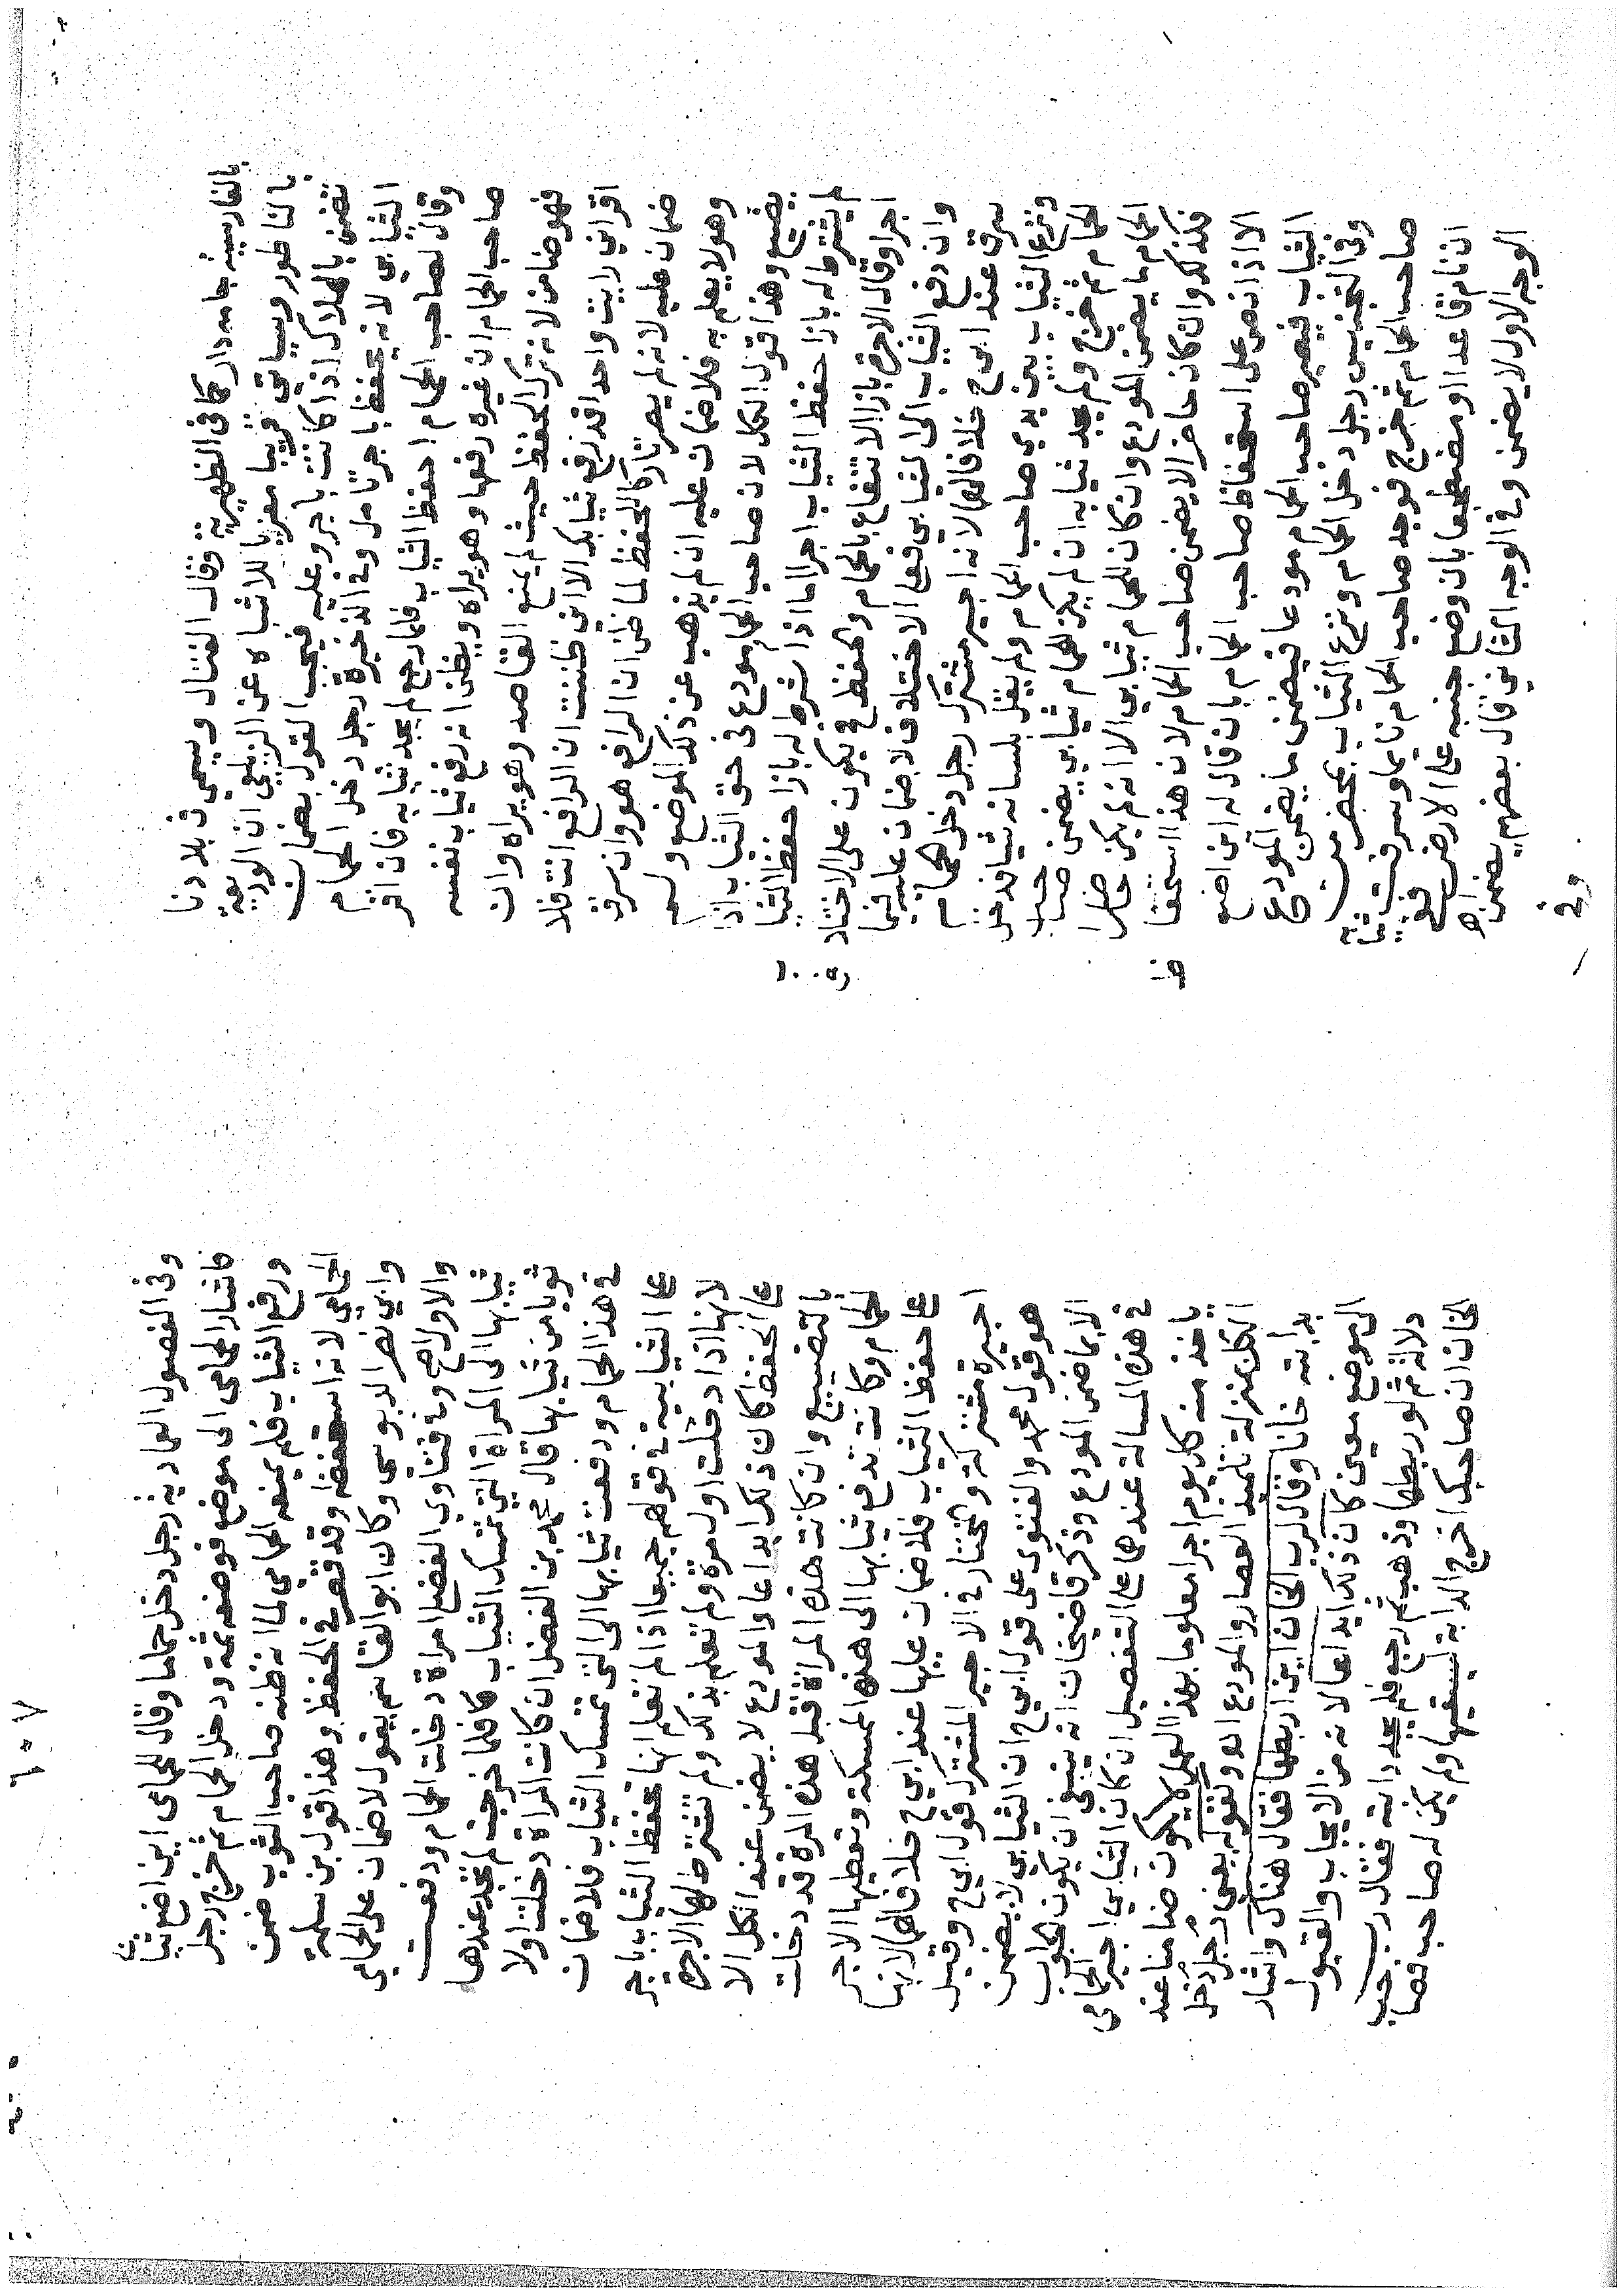 بالفارسية جامه دار كما في الظهيرية فقال الفتال ويسمى في بلادنا
بالناطور وسياتي قريبا معزيا للاشباه عن الزيلعي ان الوديعة
تضمن بالهلاك اذا كانت باجر وعليه فيجب القول بضمان
الثيابي لانه يحفظ باجر تامل وفي الذخيرة رجل دخل الحمام
وقال لصاحب الحمام احفظ الثياب فلما رجع لم يجد ثيابه فان اقر
صاحب الحمام ان غيره رفعها وهو يراه ويظن انه رفع ثياب نفسه
فهو ضامن لانه ترك الحفظ حيث لم يمنع القاصد وهو يراه وان
اقر اني رايت واحدا قد رفع ثيابك الا اني ظننت ان الرافع انت فلا
ضمان عليه لانه لم يصر تاركا للحفظ لما ظن ان الرافع هو وان سرق
وهو لا يعلم به فلا ضمان عليه ان لم يذهب عن ذلك الموضع ولم
يضيع وهذا قول الكل لان صاحب الحمام مودع في حق الثياب اذا
لم يشترط له بازاء حفظ الثياب اجرا اما اذا شرط له بازاء حفظ الثيا
اجرا وقال الاجرة بازاء الانتفاع بالحمام والحفظ فح يكون على الاختلا
وان دفع الثياب الى الثيابي فعلى الاختلاف لا ضمان عليه فيما
سرق عند ابي ح خلافا لهما لانه اجير مشترك رجل دخل الحمام
ونزع الثياب بين يدي صاحب الحمام ولم يقل بلسانه شيا فدخل
الحمام ثم خرج ولم يجد ثيابه ان لم يكن للحمام ثيابي يضمن صاحب
الحمام ما يضمن المودع وان كان للحمام ثيابي الا انه لم يكن حاضرا
فكذلك وان كان حاضرا لا يضمن صاحب الحمام لان هذا استحفا
الا اذا نص على استحفاظ صاحب الحمام بان قال له اين اضع
الثياب فيصير صاحب الحمام مودعا فيضمن ما يضمن المودع
وفي التجنيس رجل دخل الحمام ونزع الثياب بمحضر من
صاحب الحمام ثم خرج فوجد صاحب الحمام نائما وسرقت ثيابه
ان نام قاعدا او مضطجعا بان وضع جنبه على الارض ففي
الوجه الاول لا يضمن وفي الوجه الثاني قال بعضهم يضمن اه
وفي
وفي الفصول العمادية رجل دخل حماما وقال للحمامي اين اضع ثيا
فاشار الحمامي الى موضع فوضعه ثمة ودخل الحمام ثم خرج رجل
ورفع الثياب فلم يمنعه الحمامي لما انه ظنه صاحب الثوب ضمن
الحمامي لانه استحفظه وقد قصر في الحفظ وهذا قول بن سلمة
وابي نصر الدبوسي وكان ابو القاسم يقول لا ضمان على الحمامي
والاول اصح وفي فتاوي الفضلي امراة دخلت الحمام ودفعت
ثيابها الى المراة التي تمسك الثياب كافلما خرجت لم تجد عندها
ثوبا من ثيابها قال محمد بن الفضل ان كانت المراة دخلت اولا
في هذا الحمام ودفعت ثيابها الى التي تمسك الثياب فلا ضمان
على الثيابية في قولهم جميعا اذا لم تعلم انها تحفظ الثياب باجر
لانها اذا دخلت اول مرة ولم تعلم بذلك ولم تشترط لها الاجرة
على الحفظ كان ذلك ايداعا والمودع لا يضمن عند الكل الا
بالتضييع وان كانت هذه المراة قبل هذه المرة قد دخلت
الحمام وكانت تدفع ثيابها الى هذه الممسكة وتعطيها الاجر
على حفظ الثياب فلا ضمان عليها عند ابي ح خلافا لهما لانها
اجيرة مشتركة والمختار في الاجير المشترك قول ابي ح وقيل
هو قول محمد والفتوى على قول ابي ح ان الثيابي لا يضمن
الا بما ضمن المودع وذكر قاضيخان انه ينبغي ان يكون الجواب
في هذه المسالة عندهما على التفصيل ان كان الثيابي اجير الحمامي
ياخذ منه كل يوم اجرا معلوما بهذا العمل لا يكون ضامنا عند
الكل بمنزلة تلميذ القصار والمودع اه وقوله يعني رجل دخل
بدابته خانا وقال لرب الخان اين اربطها فقال هناك واشار
الى موضع معين كان ذلك ايداعا لانه من الايجاب والقبول
دلالة ثم لو ربطها وذهب ثم رجع فلم يجد دابته فقال رب
الخان ان صاحبك اخرج الدابة ليسقيها ولم يكن له صاحب فصا